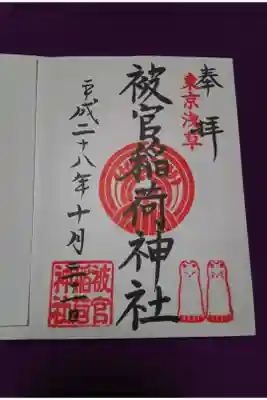 奉拝
東京浅草
被官稲荷神社
平成二十八年十月
被官
稲荷
神社